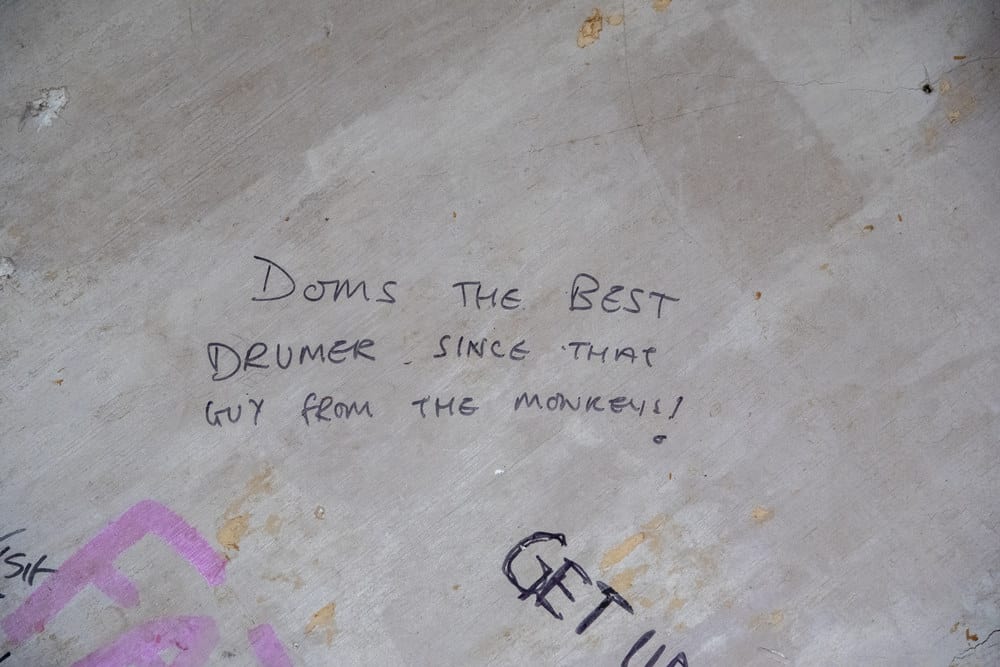 DOMS THE BEST
DRUMER SINCE THAT
GUY FROM THE MONKEYS!
GET